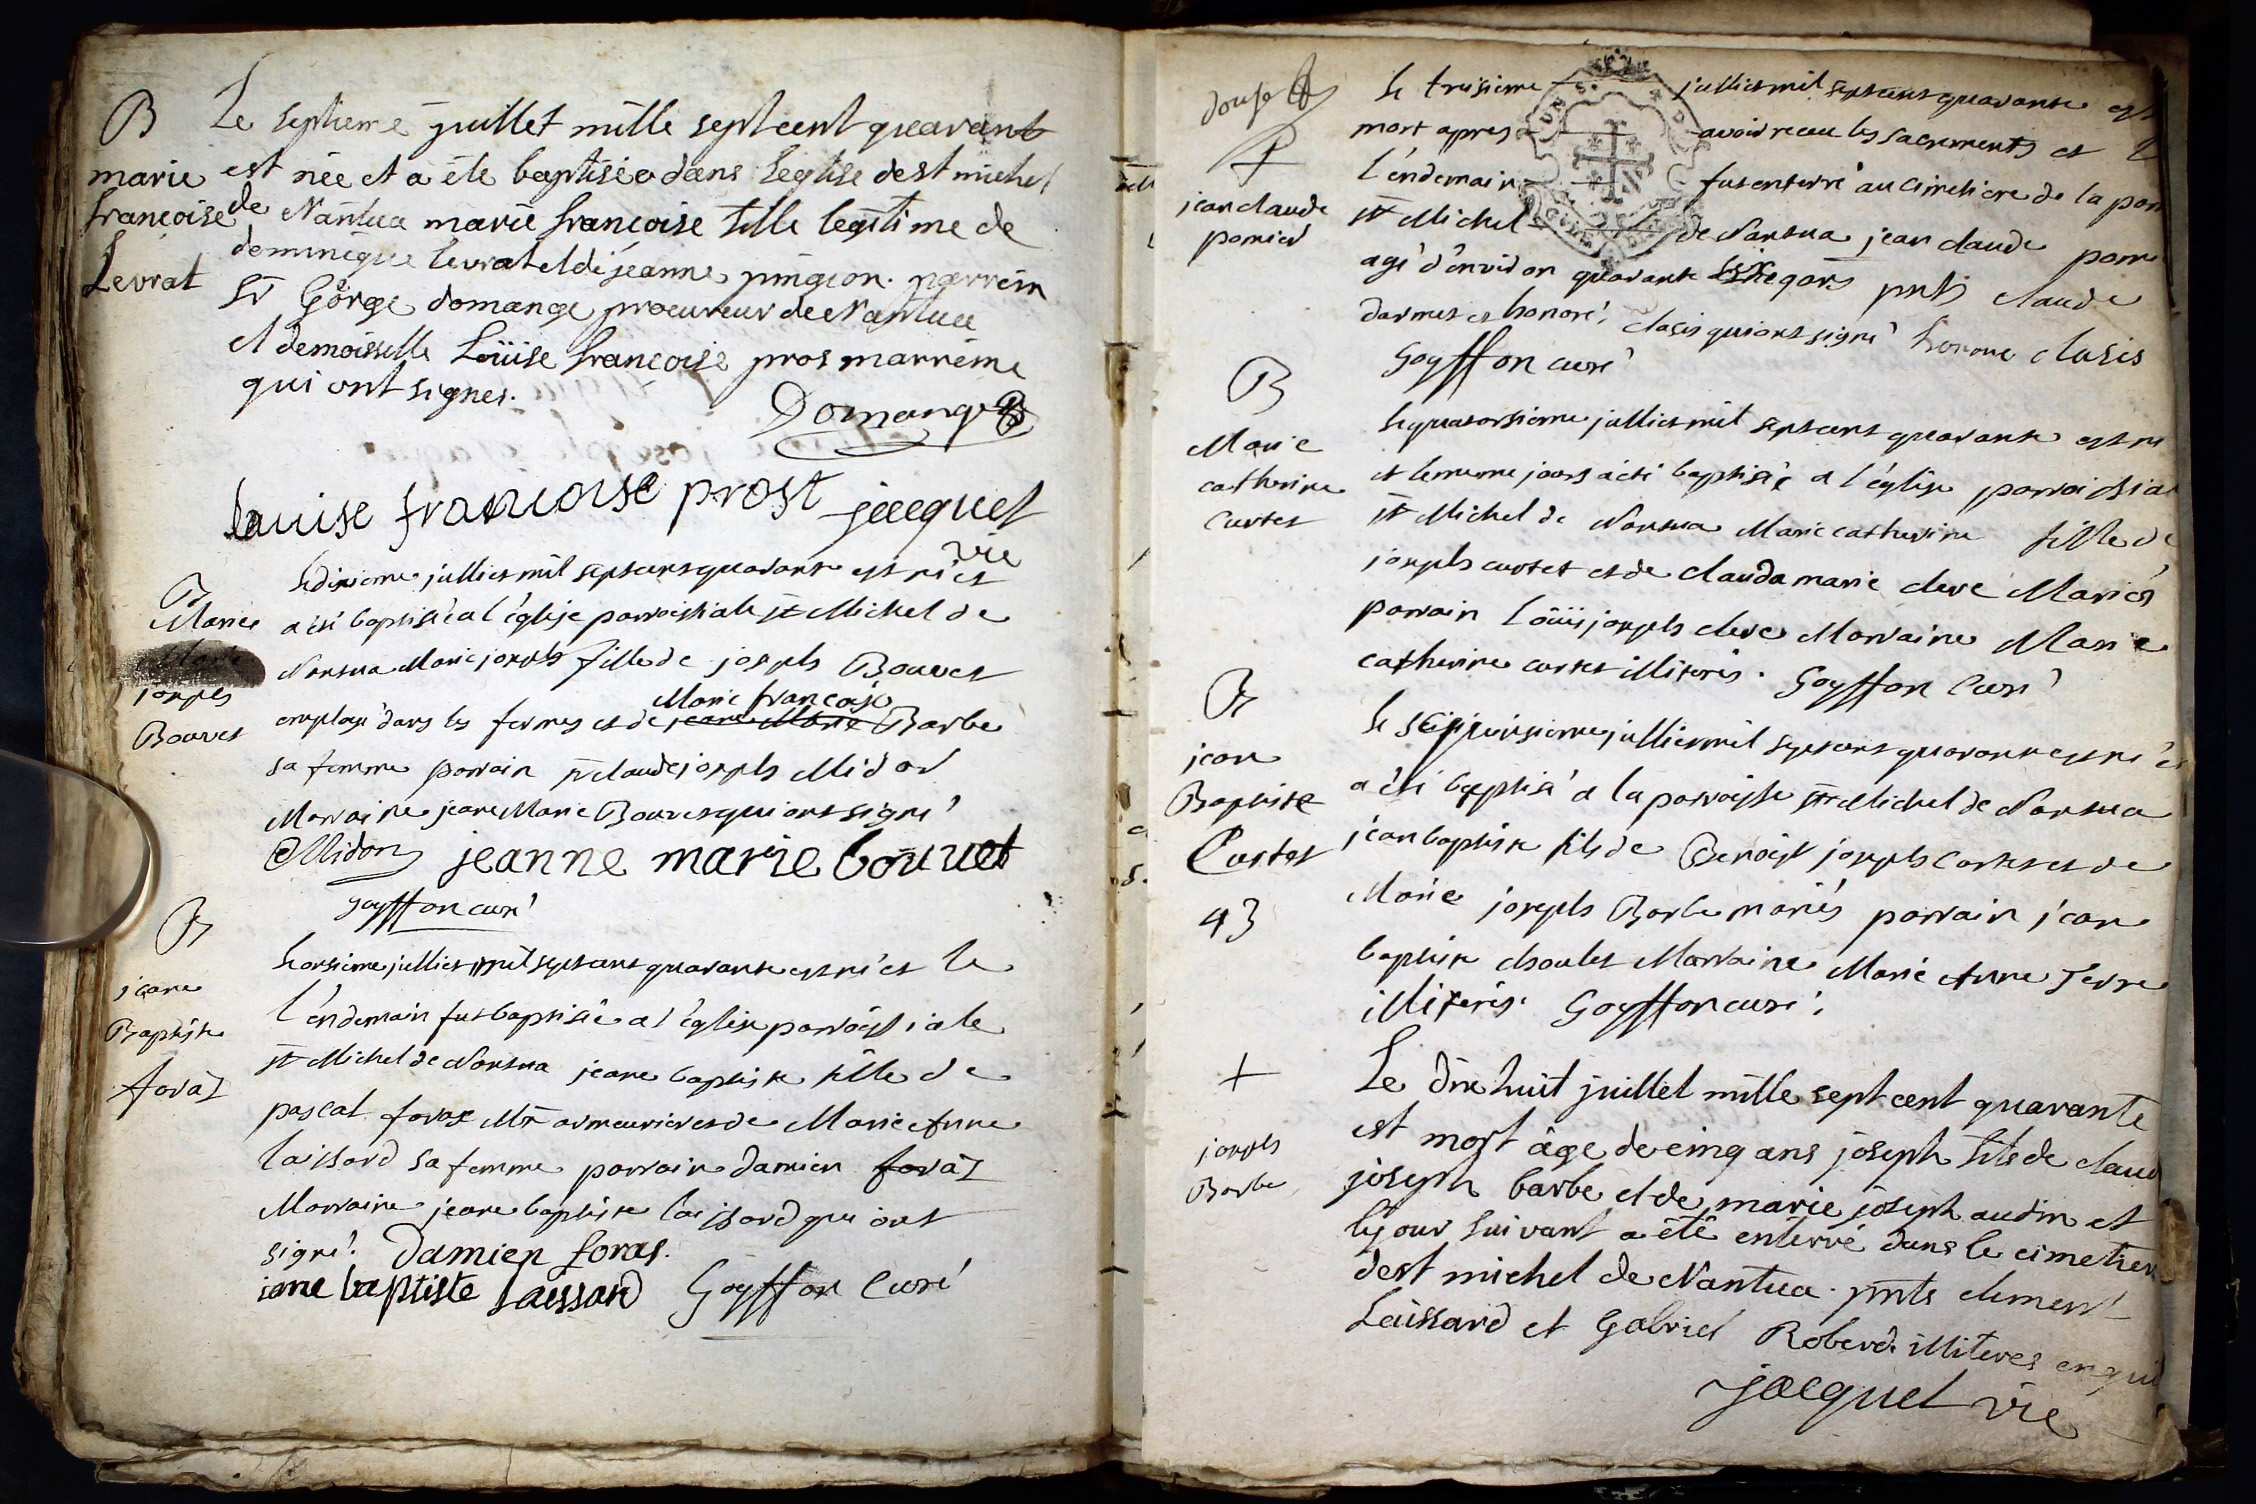 B
marie
françoise
Levrat
Le septieme juillet mille sept cent quarante
est née et a été baptisée dans leglise de st michel
de Nantua marie françoise fille legitime de
dominique levrat et de jeanne pingeon. parrein
Sr Gorge domange procureur de Nantua
et demoisselle Loüise françoise pros marreine
qui ont signes.
Domange
Louise francoise prost jacquet
vic
B
Marie
joseph
Bouvet
Le dixieme julliet mil septcent quarante est né et
a été baptisée a l'église parroissiale st Michel de
Nantua Marie joseph fille de joseph Bouvet
employé dans les fermes et de Marie françoise Barbe
sa femme parrain sr claude joseph Midor
Marraine jeane Marie Bouvet qui ont signé
Midon jeanne marie bouuet
Goyffon curé
B
jeane
Baptiste
foraz
Le onsieme julliet mil septcent quarante est né et le
l'endemain fut baptisée a l'église parroissiale
st Michel de Nantua jeane baptiste fille de
pascal foraz Mre armeurier et de Marie Anne
laissard sa femme parrain damien foraz
Marraine jeane baptiste laissard qui ont
signé. Damien foras.
iane baptiste Laissard Goyffon Curé
douse
jean claude
pomier
Le troisieme julliet mil septcent quarante est
mort apres avoir receu les sacrements et
l'endemain fut enterré au cimetiere de la
st Michel de Nantua jean claude
agé d'environ quarante pnts claude
darmet et honoré clasis qui ont signé honore clasis
Goyffon curé
B
Marie
catherine
Curtet
Le quatorsieme julliet mil septcent quarante est né
et le meme jours a été baptisée a l'église
st Michel de Nantua Marie catherine fille de
joseph curtet et de clauda marie cleve Mariés
parrain loüis joseph cleve Marraine Marie
catherine curtet illiterés. Goyffon Curé
B
jean
Baptiste
Curtet
43
Le julliet mil septcent quarante est né et
a été baptisé a la parroisse st Michel de Nantua
jean baptiste fils de Benoist joseph curtet et de
Marie joseph Barbe mariés parrain jean
baptiste choulet Marraine Marie Anne
illiterés. Goyffon curé.
joseph
Barbe
Le dixhuit juillet mille sept cent quarante
est mort âge de cinq ans joseph fils de
joseph barbe et de marie joseph audin et
le jour suivant a été enterré dans le
de st michel de Nantua. pnts clement
Laissard et Gabriel Roberd. illiteres
jacquet vic